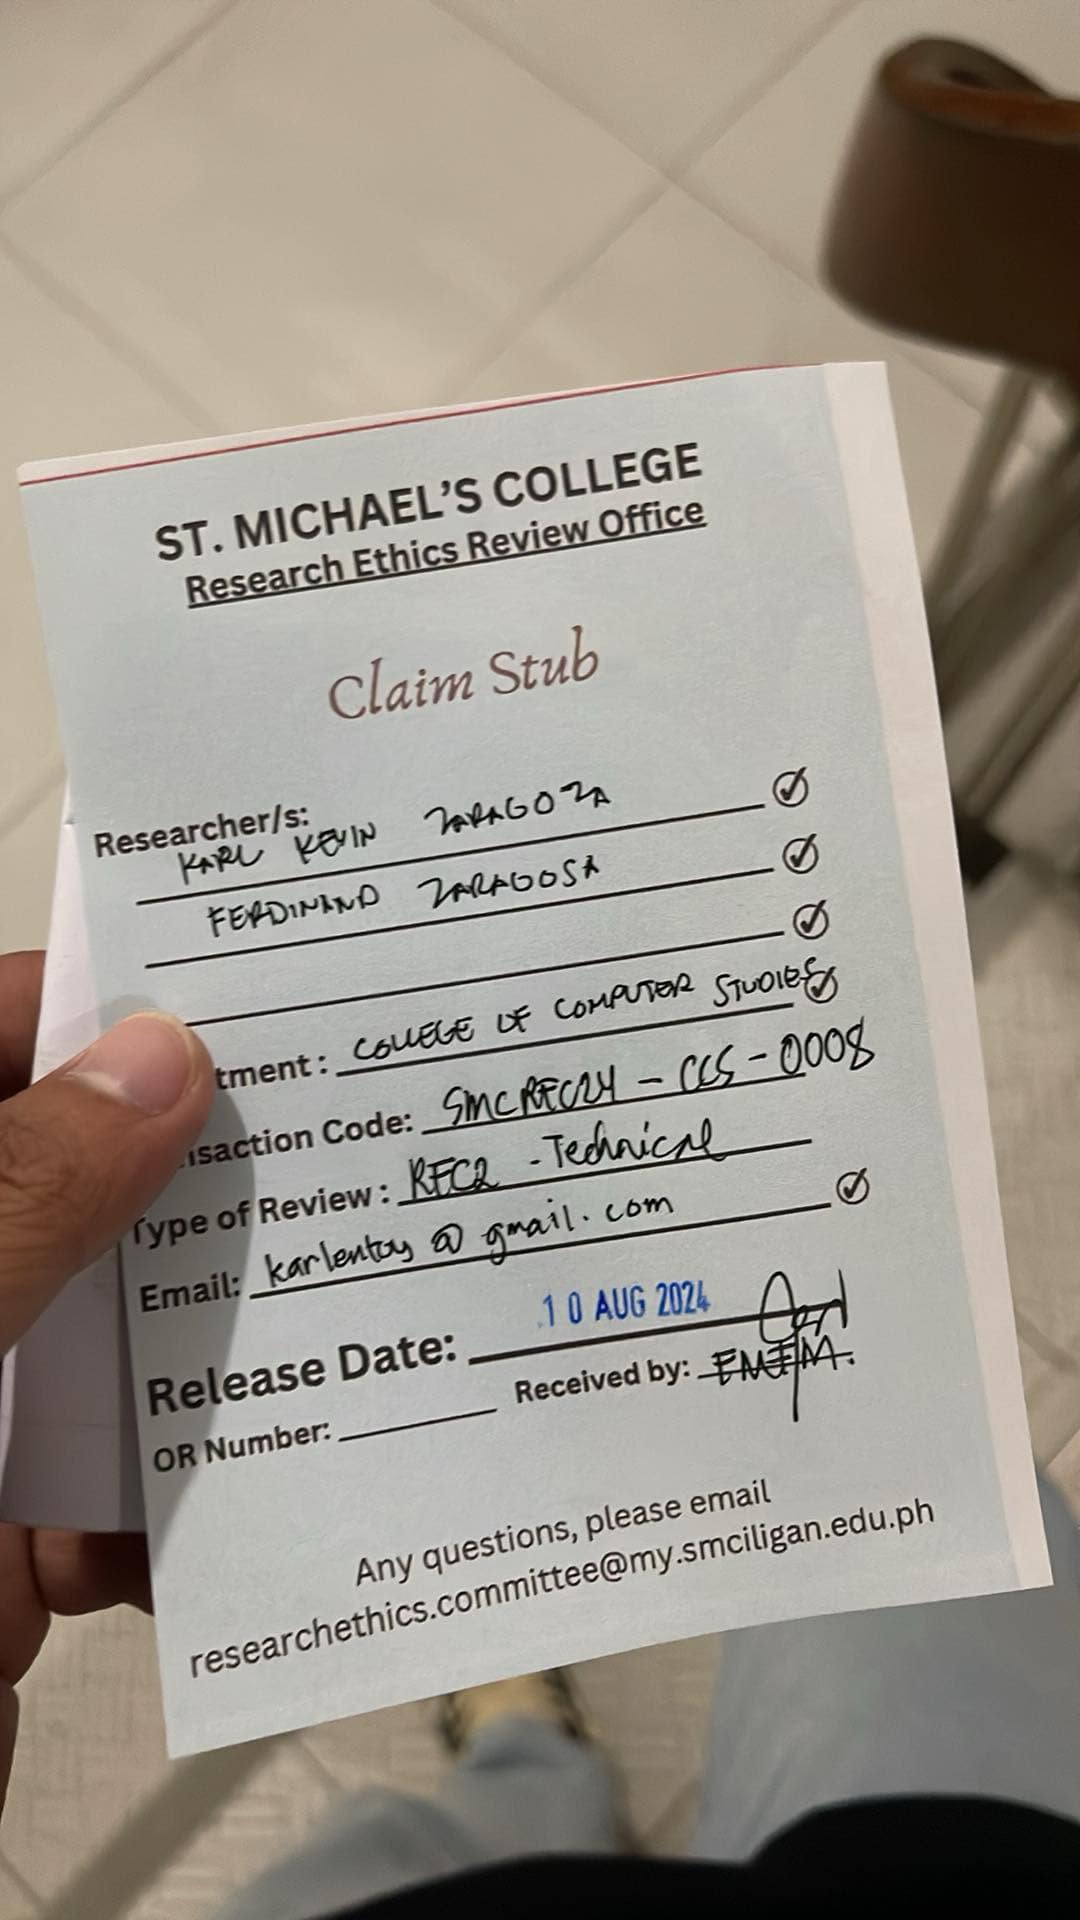 ST. MICHAEL'S COLLEGE
Research Ethics Review Office
Claim Stub
Researcher/s:
KARL KEVIN ZARAGOZA
FERDINAND ZARAGOSA
tment: COLLEGE OF COMPUTER STUDIES
nsaction Code: SMCREC24 - CCS - 0008
Type of Review: REC2 - Technical
Email: karlentoy @ gmail.com
Release Date: 10 AUG 2024
OR Number: Received by:
Any questions, please email
researchethics.committee@my.smciligan.edu.ph